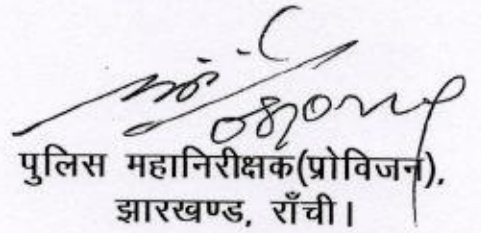 पुलिस महानिरीक्षक(प्रोविजन),
झारखण्ड, राँची।